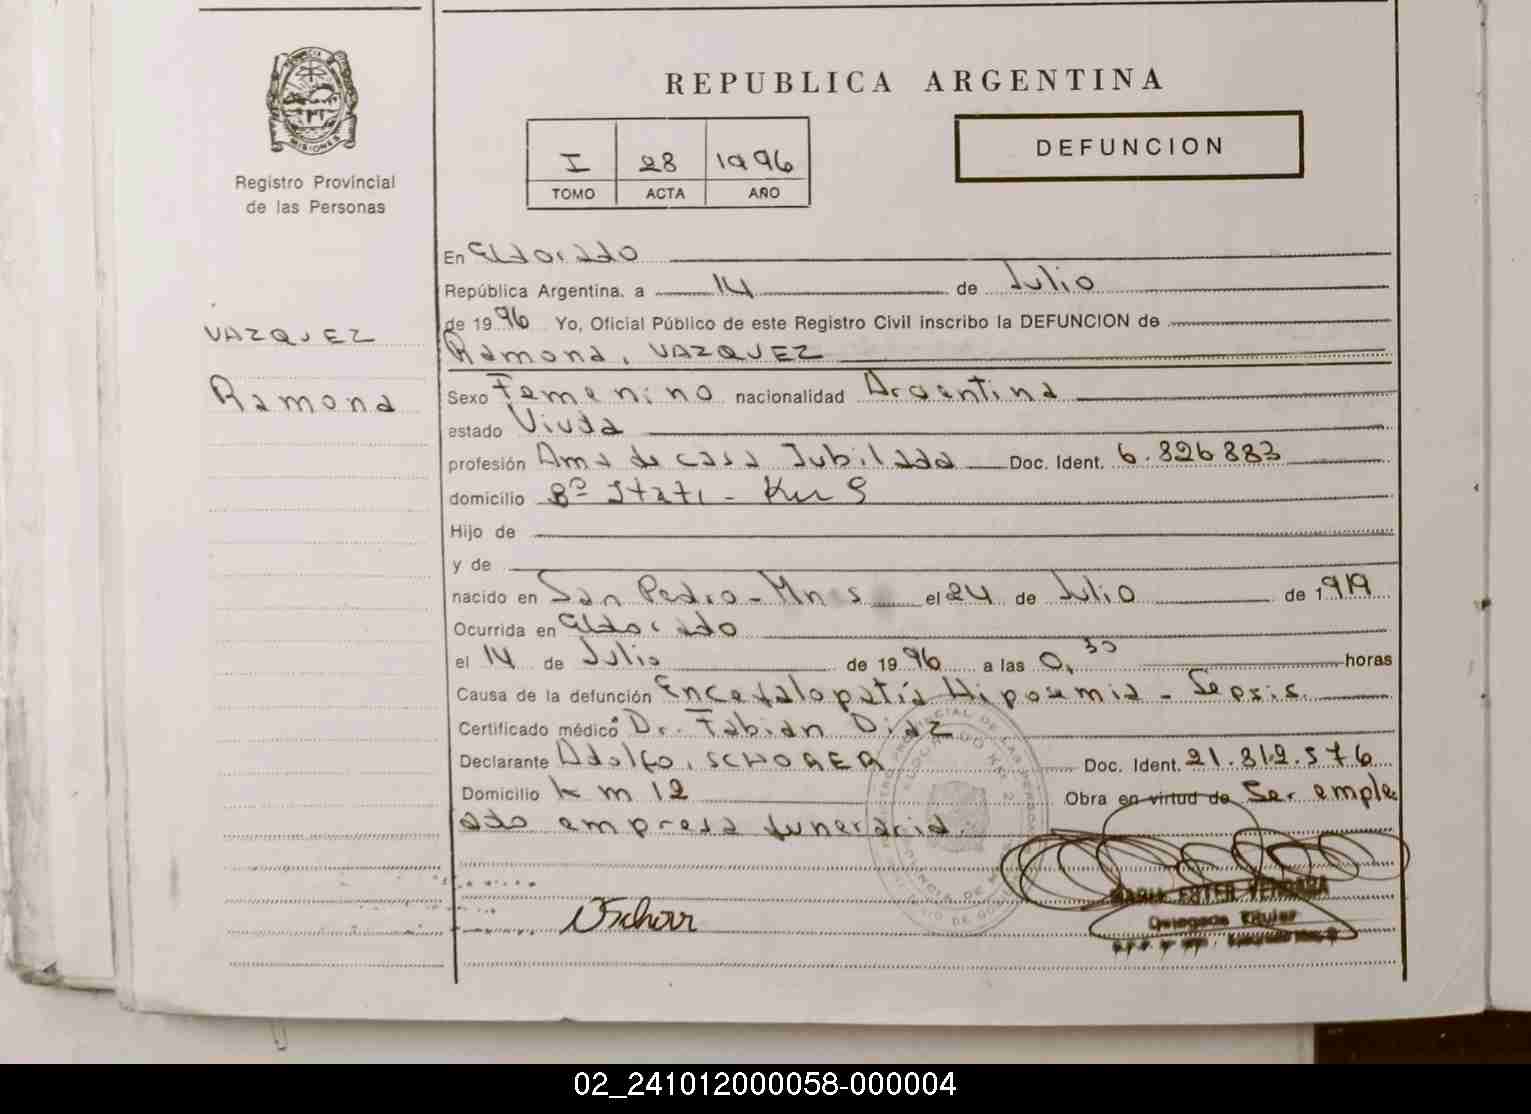 MISIONES
Registro Provincial
de las Personas
VAZQUEZ
Ramona
REPUBLICA ARGENTINA
I 28 1996
TOMO ACTA AÑO
DEFUNCION
En Eldorado
República Argentina. a 14 de Julio
de 1996 Yo, Oficial Público de este Registro Civil inscribo la DEFUNCION de
Ramona, VAZQUEZ
Sexo Femenino nacionalidad Argentina
estado Viuda
profesión Ama de casa Jubilada Doc. Ident. 6.826883
domicilio Bº Itati - Km 9
Hijo de
y de
nacido en San Pedro - Mnes el 24 de Julio de 1919
Ocurrida en Eldorado
el 14 de Julio de 1996 a las 0,30 horas
Causa de la defunción Encefalopatía Hiposemia - Sepsis.
Certificado médico Dr. Fabian Diaz
Declarante Adolfo, SCHORER Doc. Ident. 21.812.576
Domicilio km 12 Obra en virtud de Ser emple
ado empresa funeraria.
MARIA ESTER VERGARA
Delegada Titular
02_241012000058-000004